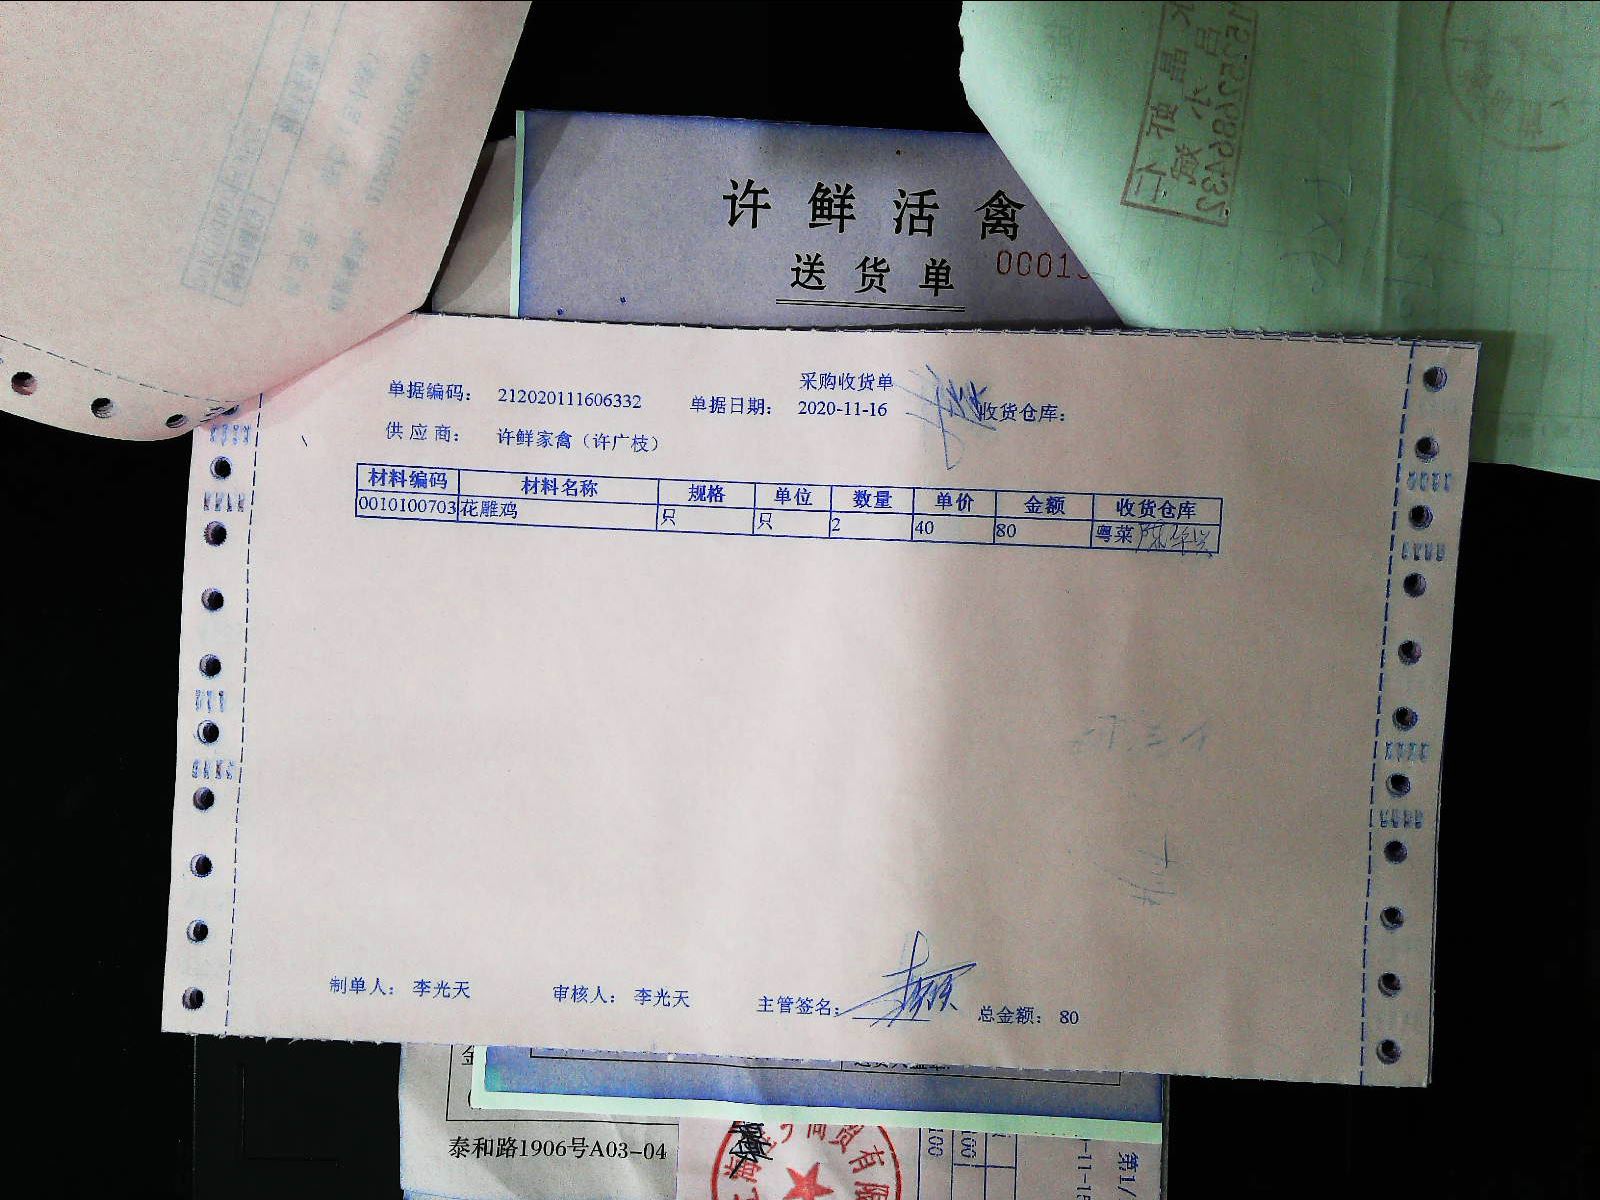 许鲜活禽
送货单
采购收货单
单据编码： 212020111606332 单据日期： 2020-11-16 收货仓库：
供应商： 许鲜家禽（许广枝）
材料编码 材料名称 规格 单位 数量 单价 金额 收货仓库
0010100703 花雕鸡 只 只 2 40 80 粤菜
制单人： 李光天 审核人： 李光天 主管签名： 总金额： 80
泰和路1906号A03-04
商贸有限